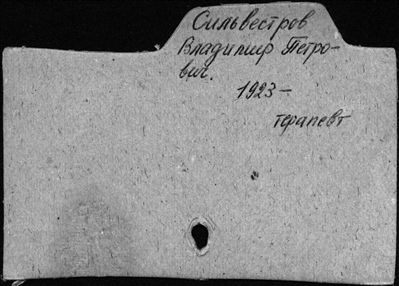 Сильвестров
Владимир Петро-
вич.
1923-
терапевт